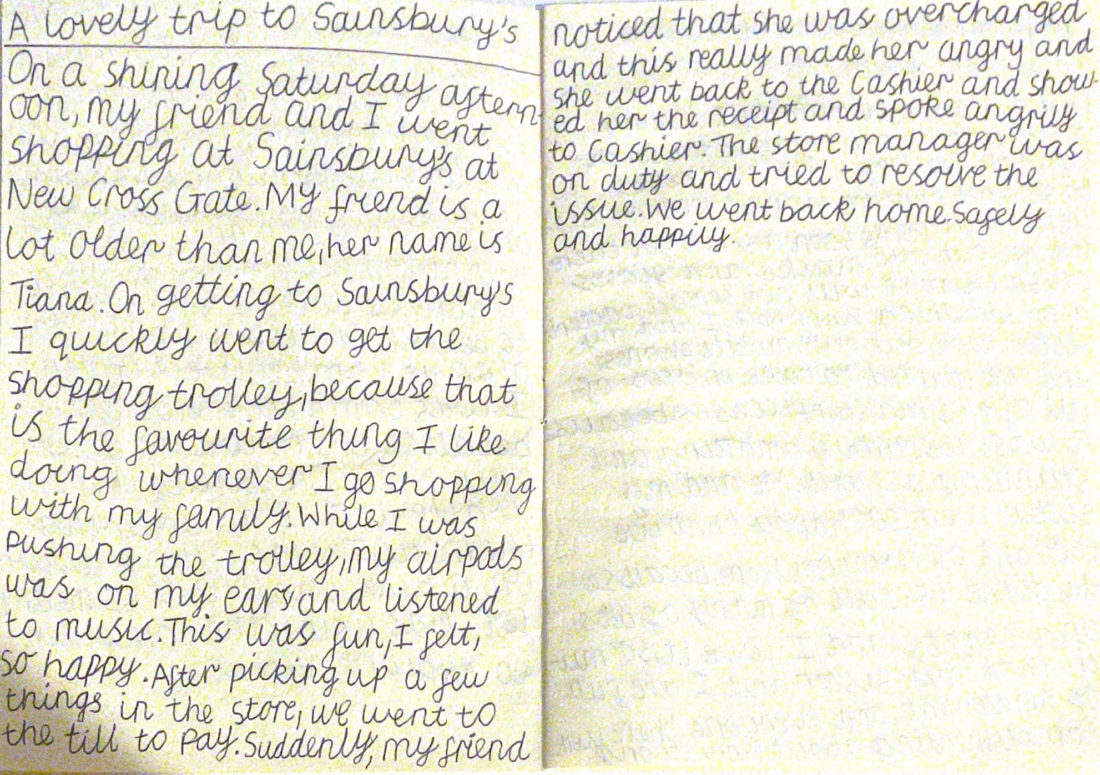 A lovely trip to Sainsbury's
On a shining Saturday aftern-
oon, my friend and I went
shopping at Sainsbury's at
New Cross Gate. My friend is a
lot older than me, her name is
Tiana. On getting to Sainsbury's
I quickly went to get the
shopping trolley, because that
is the favourite thing I like
doing whenever I go shopping
with my family. While I was
pushing the trolley, my airpods
was on my ears and listened
to music. This was fun, I felt,
so happy. After picking up a few
things in the store, we went to
the till to pay. Suddenly, my friend
noticed that she was overcharged
and this really made her angry and
she went back to the Cashier and show-
ed her the receipt and spoke angrily
to Cashier. The store manager was
on duty and tried to resolve the
issue. We went back home safely
and happily.